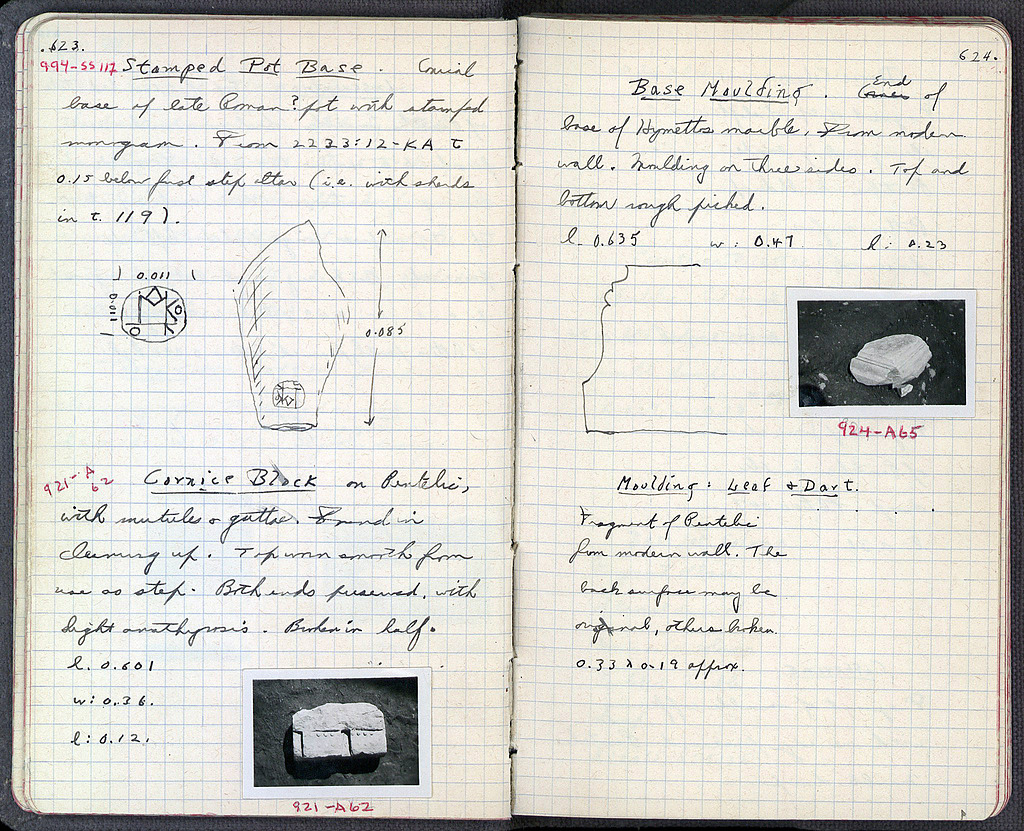 .623.
994-SS117 Stamped Pot Base. Conical
base of late Roman? pot with stamped
monogram. From 2233:12-KA τ
0.15 below first step altar (i.e. with sherds
in τ. 119).
0.011
0.011
0.085
921-A
62
Cornice Block on Pentelic,
with mutules & guttae. Found in
cleaning up. Top worn smooth from
use as step. Both ends preserved, with
slight anathyrosis. Broken in half.
l. 0.601
w: 0.36.
l: 0.12.
921-A62
624.
Base Moulding. End of
base of Hymettos marble, from modern
wall. Moulding on three sides. Top and
bottom rough picked.
l. 0.635 w: 0.47 h: 0.23
924-A65
Moulding: Leaf & Dart.
Fragment of Pentelic
from modern wall. The
back surface may be
original, others broken.
0.33 x 0.19 approx.